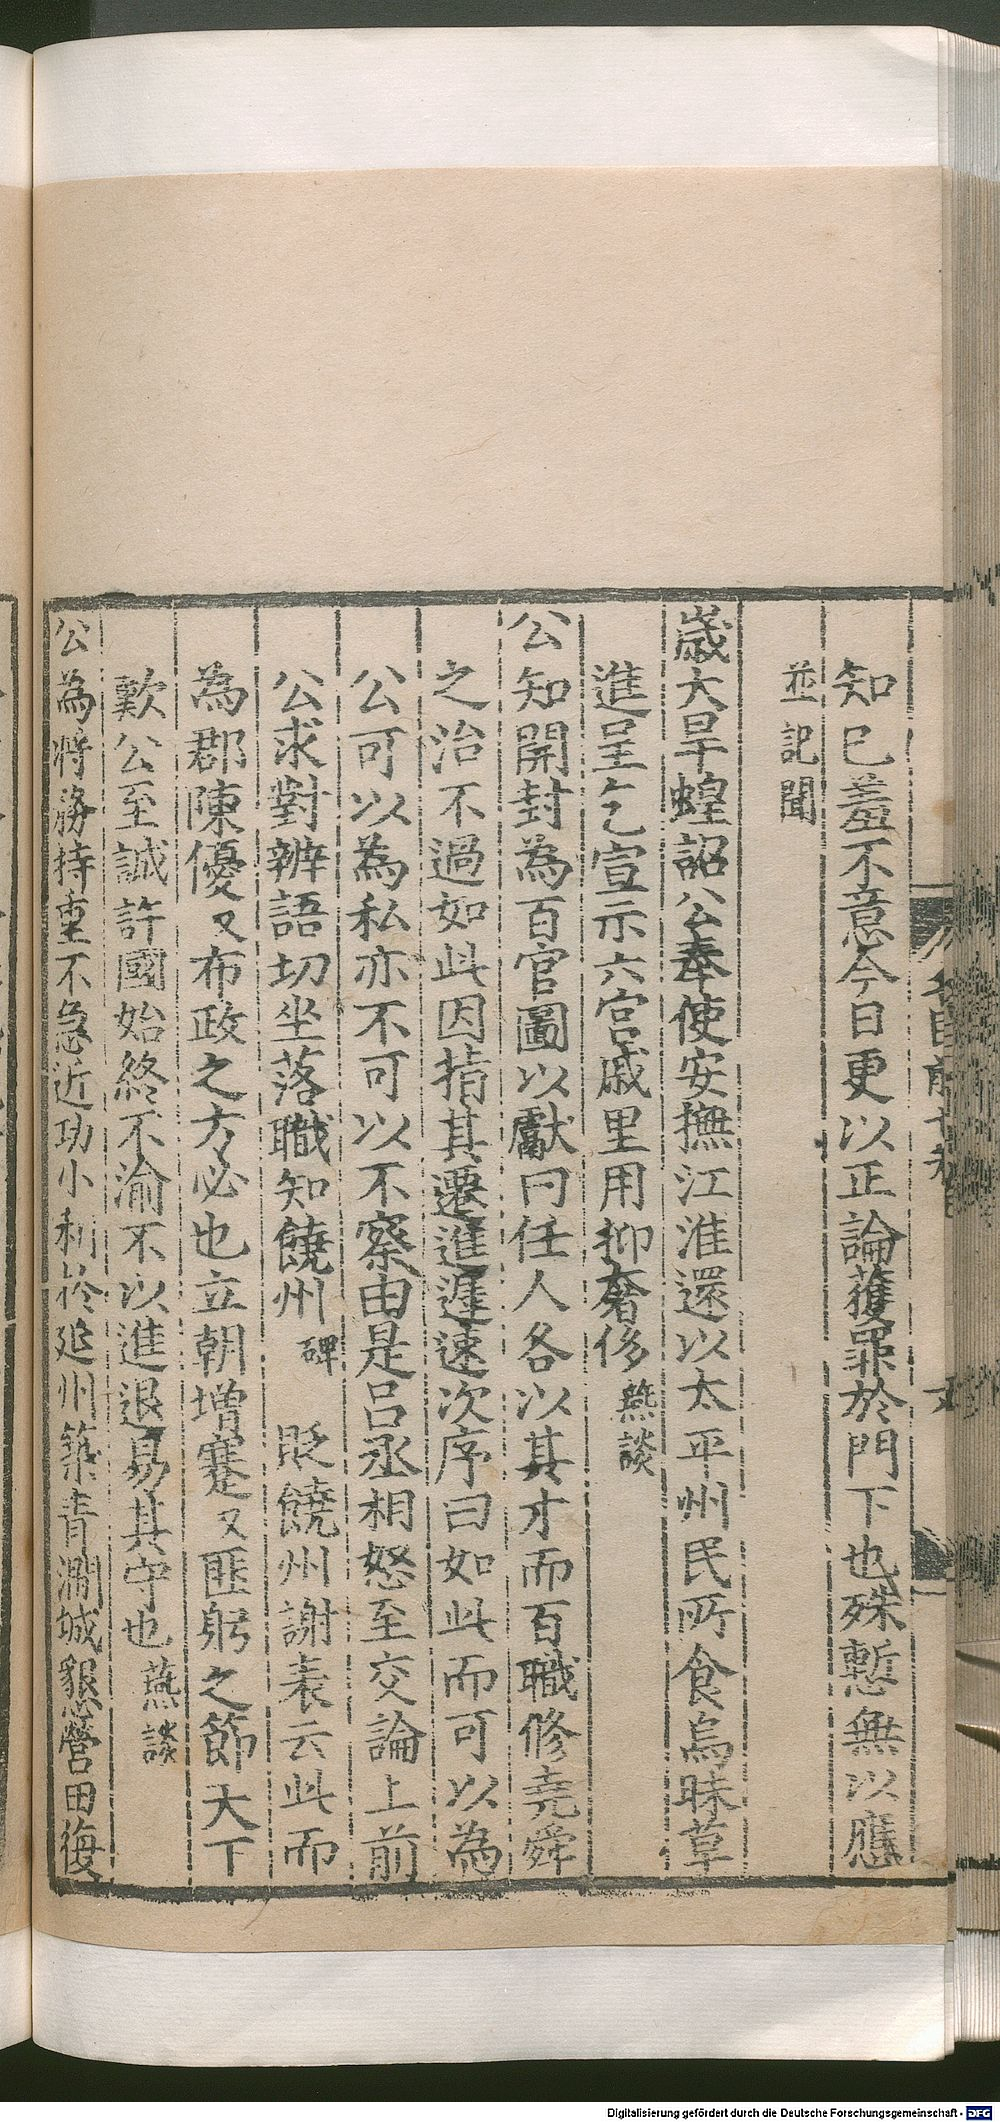 知已羞不意今日更以正論獲罪於門下也殊慙無以應
並記聞
歲大旱蝗詔公奉使安撫江淮還以太平州民所食烏昧草
進呈乞宣示六宮戚里用抑奢侈燕談
公知開封為百官圖以獻曰任人各以其才而百職修堯舜
之治不過如此因指其遷進遲速次序曰如此而可以為
公可以為私亦不可以不察由是呂丞相怒至交論上前
公求對辨語切坐落職知饒州碑　貶饒州謝表云此而
為郡陳優又布政之方必也立朝增蹇又匪躬之節天下
歎公至誠許國始終不渝不以進退易其守也燕談
公為將務持重不急近功小利於延州築青澗城懇營田復
Digitalisierung gefördert durch die Deutsche Forschungsgemeinschaft - DFG